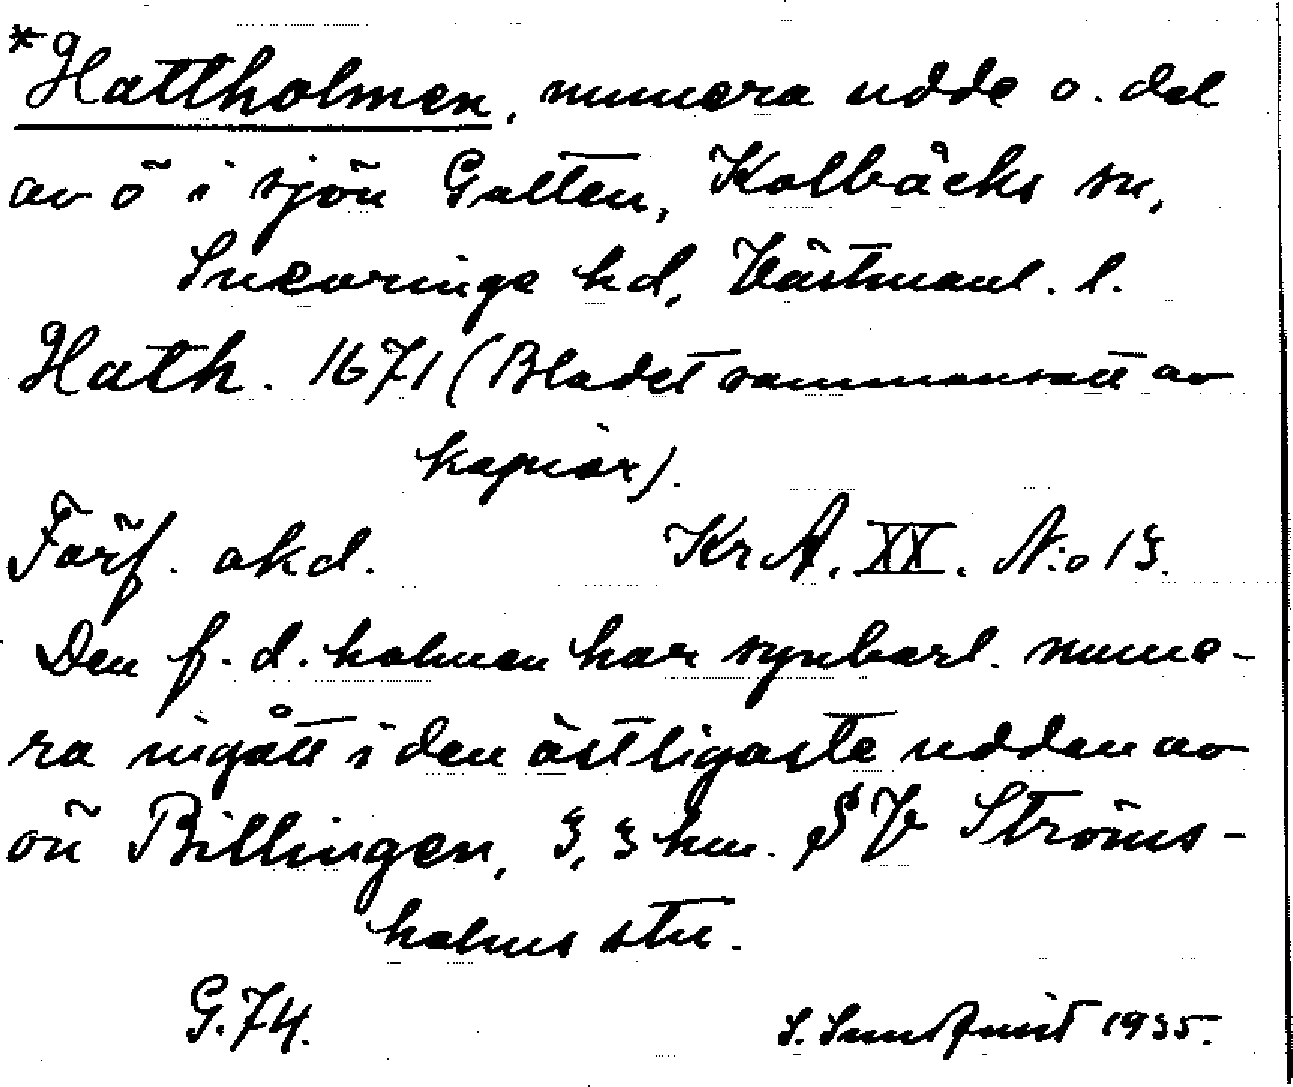 *Hattholmen, numera udde o. del
av ö i sjön Galten, Kolbäcks sn,
Snevringe hd, Västmanl. l.
Hath. 1671 (Bladet sammansatt av
kopior).
Förf. okd. KrA. XX. N:o 13.
Den f. d. holmen har synbarl. nume-
ra ingått i den östligaste udden av
ön Billingen, 3,3 km. SV Ströms-
holms stn.
G.74. S. Sundqvist 1935.